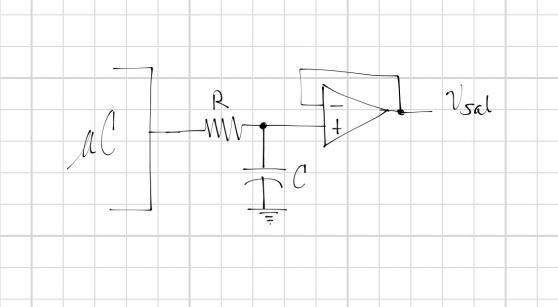 μC
R
C
-
+
Vsal